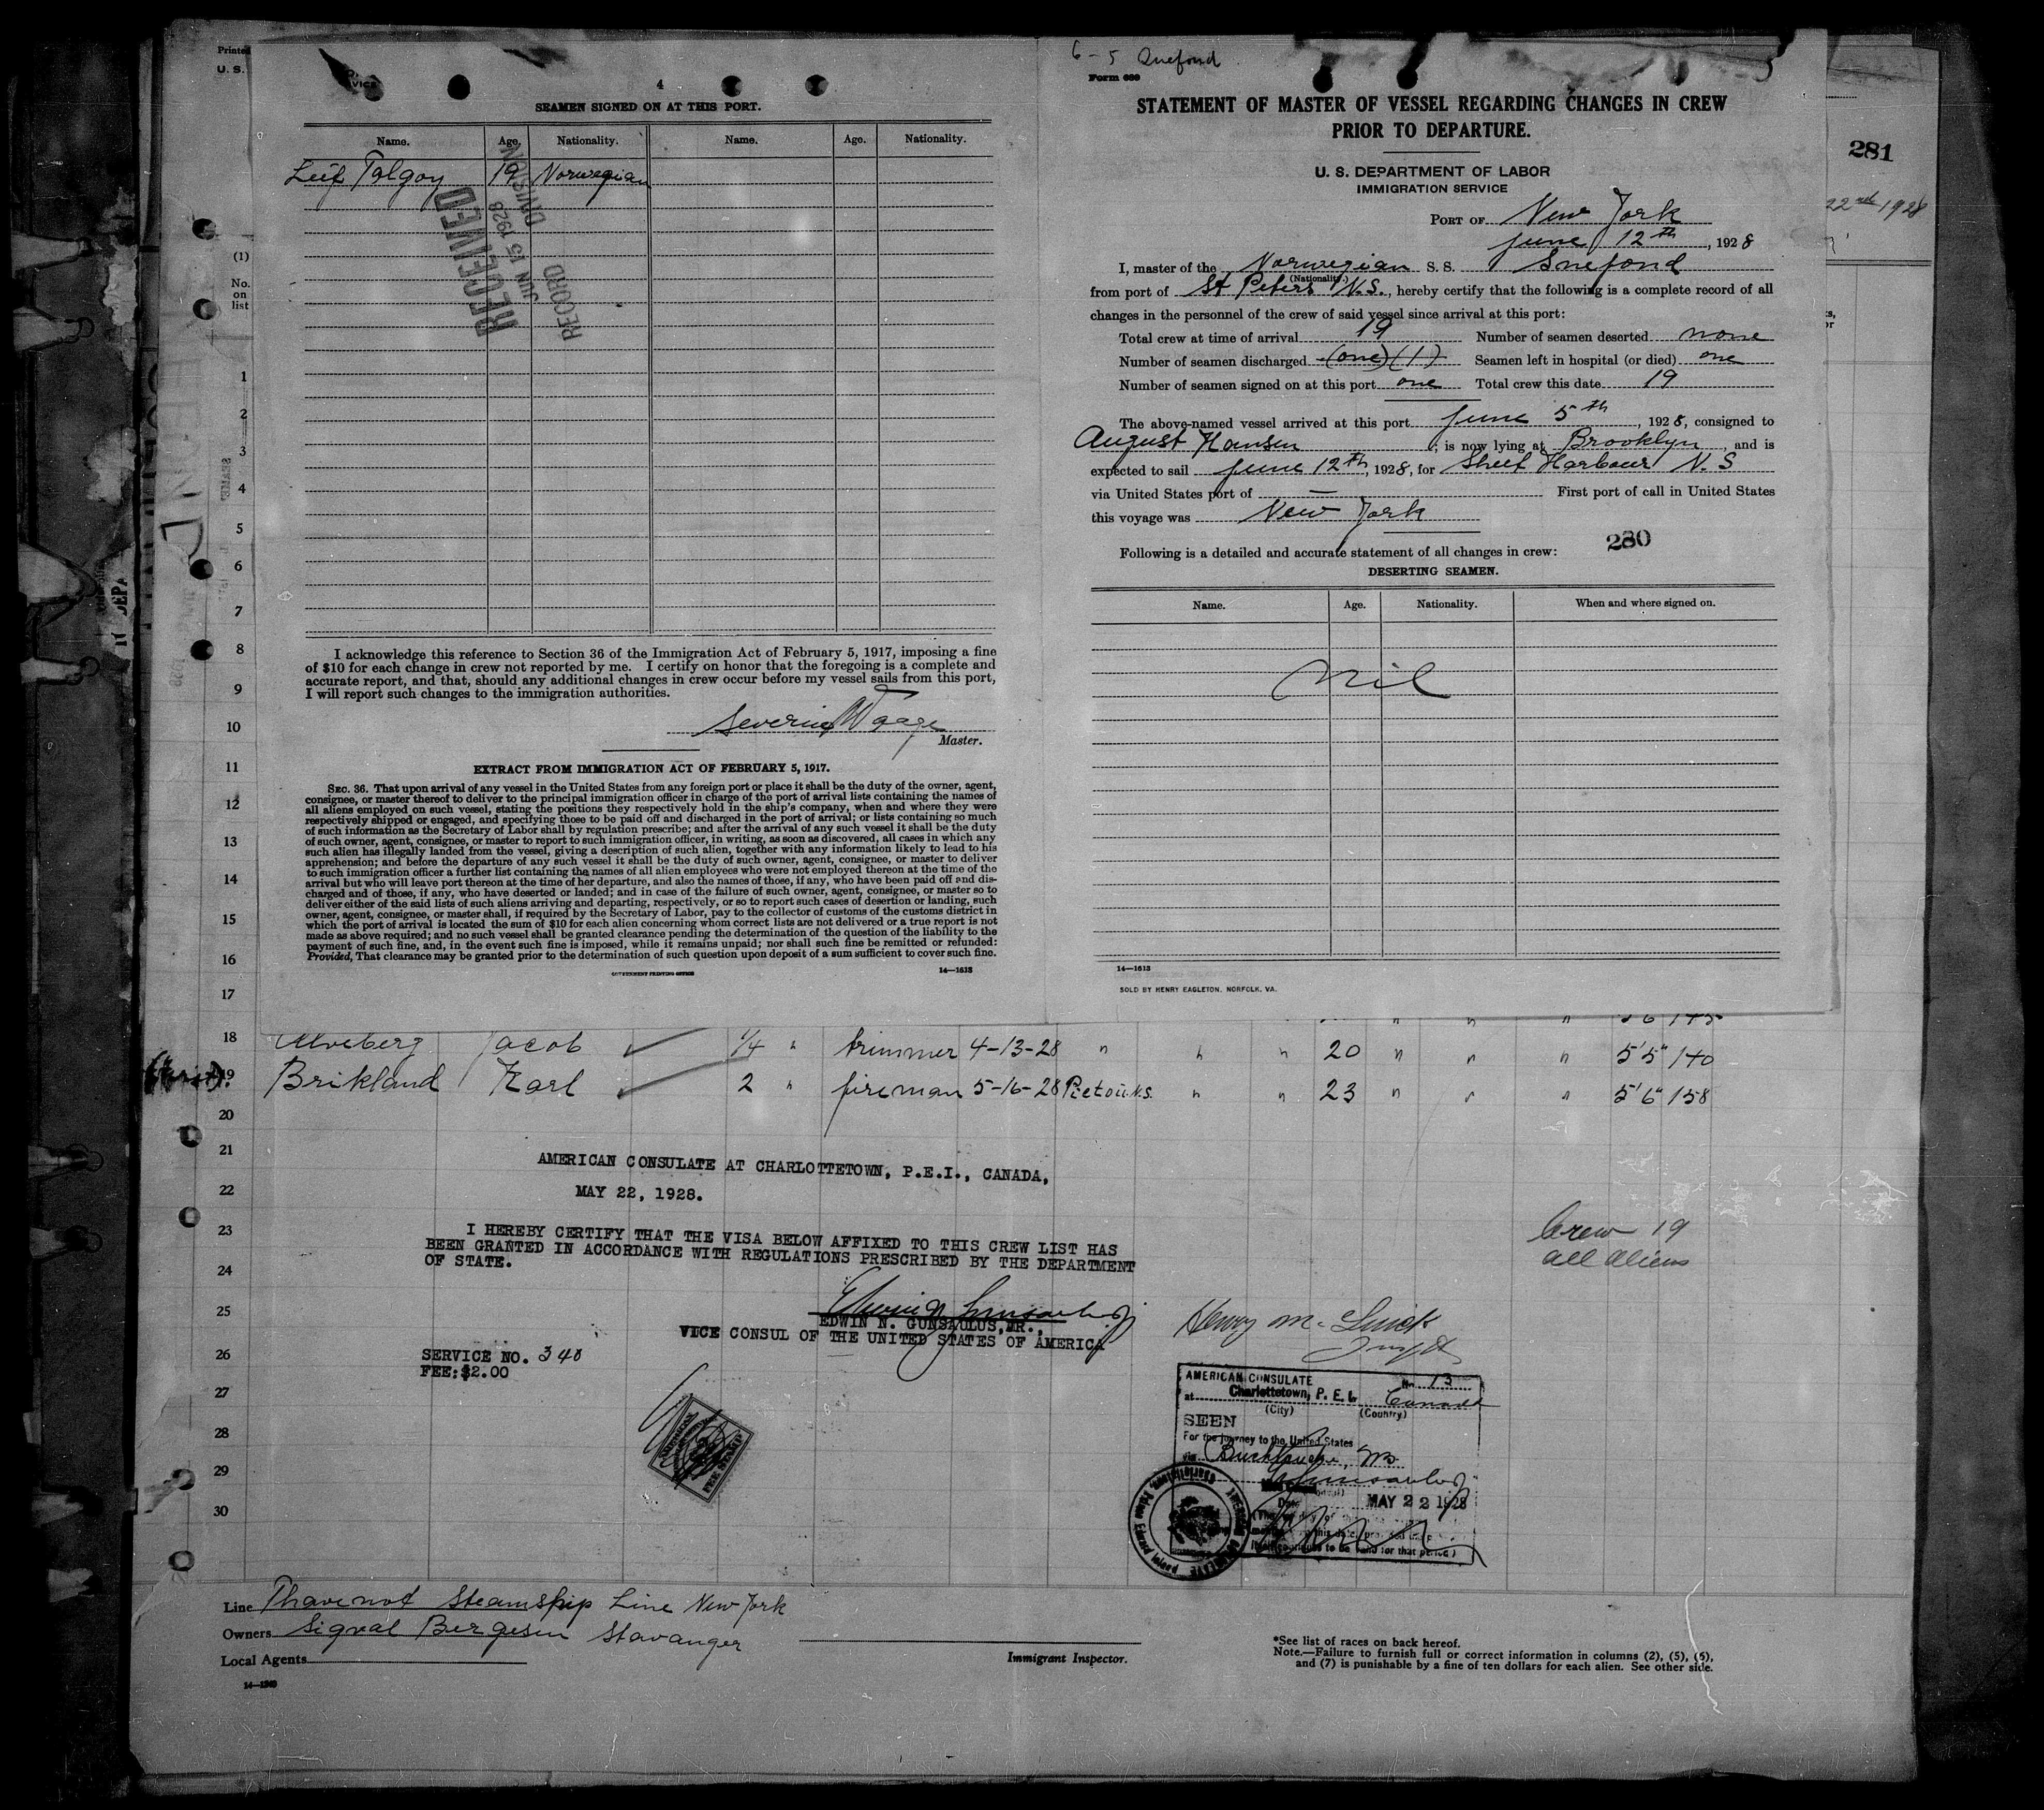 Printed
U. S.
VICE
4
SEAMEN SIGNED ON AT THIS PORT.
Name. Age. Nationality. Name. Age. Nationality.
Leif Talgoy 19 Norwegian
RECEIVED
JUN 15 1928
RECORD DIVISION
I acknowledge this reference to Section 36 of the Immigration Act of February 5, 1917, imposing a fine
of $10 for each change in crew not reported by me. I certify on honor that the foregoing is a complete and
accurate report, and that, should any additional changes in crew occur before my vessel sails from this port,
I will report such changes to the immigration authorities.
Severin Waage
Master.
EXTRACT FROM IMMIGRATION ACT OF FEBRUARY 5, 1917.
SEC. 36. That upon arrival of any vessel in the United States from any foreign port or place it shall be the duty of the owner, agent,
consignee, or master thereof to deliver to the principal immigration officer in charge of the port of arrival lists containing the names of
all aliens employed on such vessel, stating the positions they respectively hold in the ship's company, when and where they were
respectively shipped or engaged, and specifying those to be paid off and discharged in the port of arrival; or lists containing so much
of such information as the Secretary of Labor shall by regulation prescribe; and after the arrival of any such vessel it shall be the duty
of such owner, agent, consignee, or master to report to such immigration officer, in writing, as soon as discovered, all cases in which any
such alien has illegally landed from the vessel, giving a description of such alien, together with any information likely to lead to his
apprehension; and before the departure of any such vessel it shall be the duty of such owner, agent, consignee, or master to deliver
to such immigration officer a further list containing the names of all alien employees who were not employed thereon at the time of the
arrival but who will leave port thereon at the time of her departure, and also the names of those, if any, who have been paid off and dis-
charged and of those, if any, who have deserted or landed; and in case of the failure of such owner, agent, consignee, or master so to
deliver either of the said lists of such aliens arriving and departing, respectively, or so to report such cases of desertion or landing, such
owner, agent, consignee, or master shall, if required by the Secretary of Labor, pay to the collector of customs of the customs district in
which the port of arrival is located the sum of $10 for each alien concerning whom correct lists are not delivered or a true report is not
made as above required; and no such vessel shall be granted clearance pending the determination of the question of the liability to the
payment of such fine, and, in the event such fine is imposed, while it remains unpaid; nor shall such fine be remitted or refunded:
Provided, That clearance may be granted prior to the determination of such question upon deposit of a sum sufficient to cover such fine.
GOVERNMENT PRINTING OFFICE 14—1613
6 - 5 Snefond
Form 689
STATEMENT OF MASTER OF VESSEL REGARDING CHANGES IN CREW
PRIOR TO DEPARTURE.
U. S. DEPARTMENT OF LABOR
IMMIGRATION SERVICE
PORT OF New York
June 12th, 1928
I, master of the Norwegian S. S. Snefond
(Nationality)
from port of St Peters N.S., hereby certify that the following is a complete record of all
changes in the personnel of the crew of said vessel since arrival at this port:
Total crew at time of arrival 19 Number of seamen deserted none
Number of seamen discharged (one) (1) Seamen left in hospital (or died) one
Number of seamen signed on at this port one Total crew this date 19
The above-named vessel arrived at this port June 5th, 1928, consigned to
August Hansen; is now lying at Brooklyn, and is
expected to sail June 12th, 1928, for Sheet Harbour N.S
via United States port of — First port of call in United States
this voyage was New York
280
Following is a detailed and accurate statement of all changes in crew:
DESERTING SEAMEN.
Name. Age. Nationality. When and where signed on.
nil
14—1613
SOLD BY HENRY EAGLETON, NORFOLK, VA.
281
22nd 1928
(1)
No.
on
list
1
2
3
4
5
6
7
8
9
10
11
12
13
14
15
16
17
5'6" 145
18 Alveberg Jacob 1/4 " trimmer 4-13-28 " " " 20 " " " 5'5" 140
19 Brikland Karl 2 " fireman 5-16-28 Pictou N.S. " " 23 " " " 5'6" 158
20
21
22
23
24
25
26
27
28
29
30
AMERICAN CONSULATE AT CHARLOTTETOWN, P.E.I., CANADA,
MAY 22, 1928.
I HEREBY CERTIFY THAT THE VISA BELOW AFFIXED TO THIS CREW LIST HAS
BEEN GRANTED IN ACCORDANCE WITH REGULATIONS PRESCRIBED BY THE DEPARTMENT
OF STATE.
EDWIN N. GUNSAULUS, JR.,
VICE CONSUL OF THE UNITED STATES OF AMERICA
SERVICE NO. 340
FEE: $2.00
FEE STAMP
Crew 19
all aliens
AMERICAN CONSULATE No. 13
at Charlottetown, P. E. I. Canada
(City) (Country)
SEEN
For the journey to the United States
MAY 22 1928
AMERICAN CONSULATE Charlottetown, Prince Edward Island
Line Thavenot Steamship Line New York
Owners Sigval Bergesen Stavanger
Local Agents
Immigrant Inspector.
*See list of races on back hereof.
Note.—Failure to furnish full or correct information in columns (2), (5), (6),
and (7) is punishable by a fine of ten dollars for each alien. See other side.
14—1240